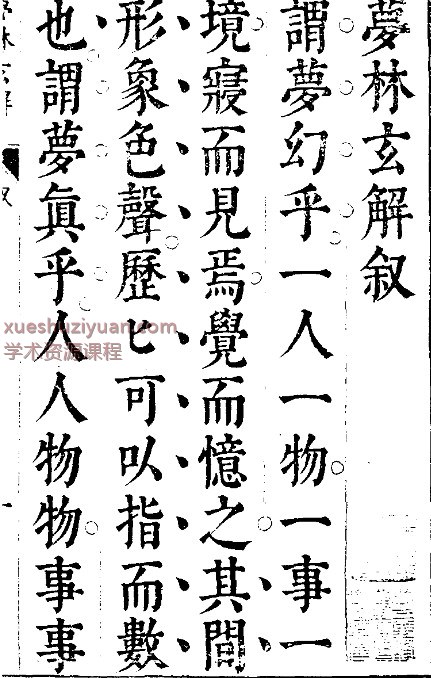 夢林玄解叙
謂夢幻乎一人一物一事一
境寢而見焉覺而憶之其間
形象色聲歷匕可以指而數
也謂夢眞乎人人物物事事
叙
一
xueshuziyuan.com
学术资源课程